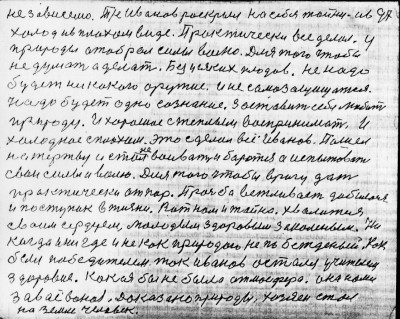 независимо. Т не Иванов раскрыл на себя
холод и в плохом виде. Практически все делал. У
природы отобрал силы волю. Для того чтобы
не думать а делать. Без всяких плодов. не надо
будет никакого оружие. и не самозащищаться.
Надо будет одно сознание. Заставит себя любит
природу. И хорошое с теплым воспринимат. И
холодное с плохим. Это сделал всё Иванов. Пошел
на жертву и стал на воиват и боротся а испытоват
свои силы и волю. Для того чтобы врагу дат
практически отпор. Просба вежливаст добился
и поступок в жизни. хвалится
своим сердцем, молодым здоровым закаленым. Ни
когда и ни где и не как природою не по беждёный. Как
был победителем так иванов остался учителем
здоровия. Какая бы не была атмосфера. она кому
завоёвона. Доказано природы, хозяин стал
на земле человек.